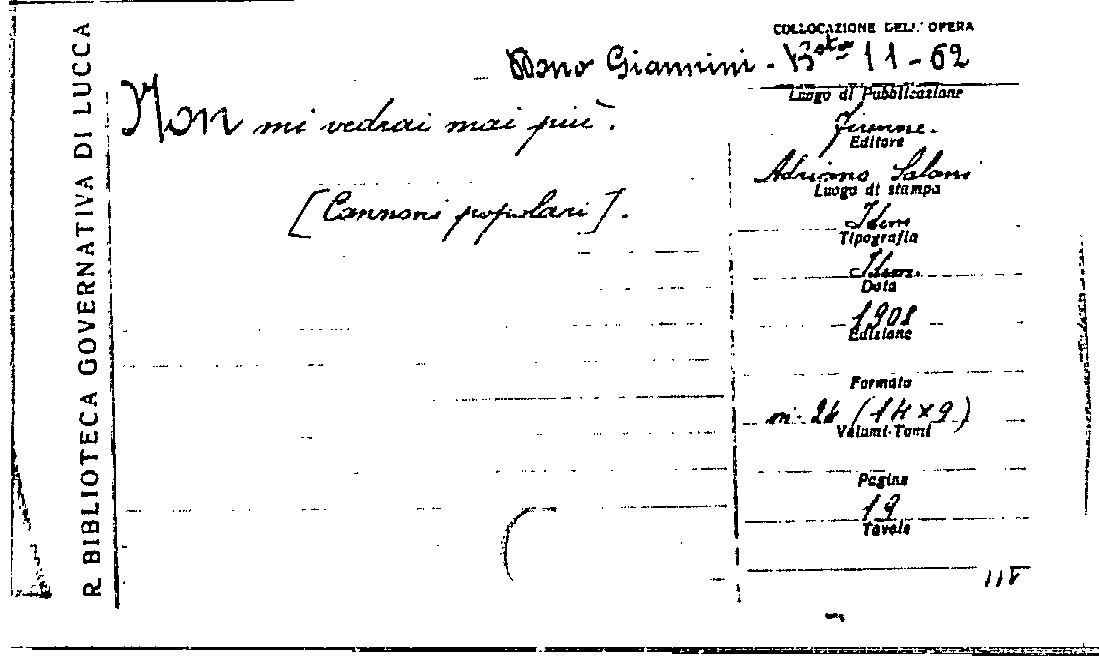 R BIBLIOTECA GOVERNATIVA DI LUCCA
COLLOCAZIONE DELL'OPERA
Dono Giannini - B.sta 11-62
Non mi vedrai mai più.
[Canzoni popolari].
Luogo di Pubblicazione
Firenze.
Editore
Adriano Salani
Luogo di stampa
Idem
Tipografia
Idem.
Data
1908
Edizione
Formato
in-24 (14x9)
Volumi-Tomi
Pagine
19
Tavole